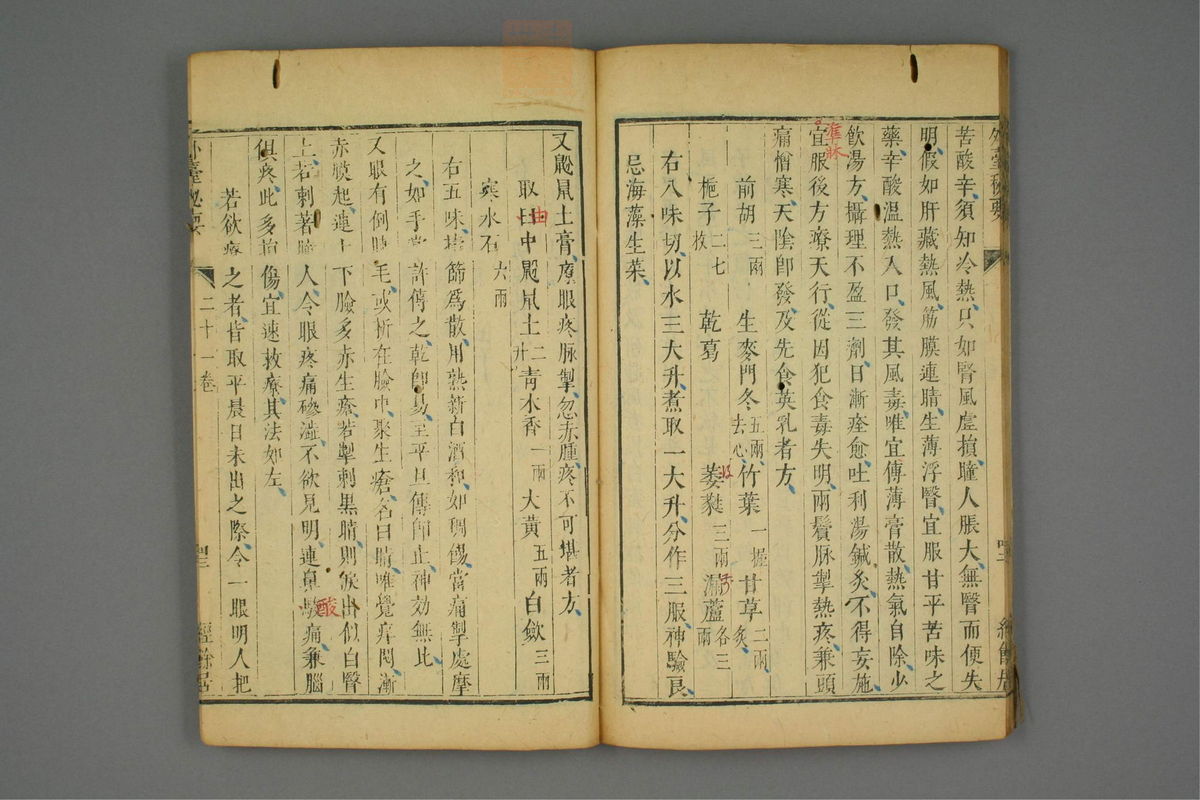 外臺秘要
苦酸辛須知冷熱只如腎風虛損瞳人脹大無瞖而便失
明假如肝藏熱風筋膜連睛生薄浮瞖宜服甘平苦味之
藥辛酸温熱入口發其風毒唯宜傅薄膏散熱氣自除少
飲湯方攝理不盈三劑日漸痊愈吐利湯鍼灸不得妄施
宜服後方療天行從因犯食毒失明兩鬢脉掣熱疼兼頭
痛憎寒天陰卽發及先食英乳者方
前胡三兩 生麥門冬五兩去心 竹葉一握 甘草二兩炙
梔子二七枚 乾葛 萎蕤三兩 漏蘆各三兩
右八味切以水三大升煮取一大升分作三服神驗良
忌海藻生菜
又鼢鼠土膏療眼疼脉掣忽赤腫疼不可堪者方
取田中鼢鼠土二升 青木香一兩 大黃五兩 白斂三兩
寒水石六兩
右五味擣篩爲散用熟新白酒和如稠餳當痛掣處摩
之如手掌許傅之乾卽易至平旦傅卽止神効無比
又眼有倒睫毛或折在臉中聚生瘡名曰睛唯覺痒悶漸
赤膜起連上下臉多赤生瘡若掣刺黑睛則淚出似白瞖
上若刺著瞳人令眼疼痛磣澁不欲見明連鼻酸痛兼腦
俱疼此多損傷宜速救療其法如左
若欲療之者皆取平晨日未出之際令一眼明人把
外臺秘要
二十一卷
經餘居